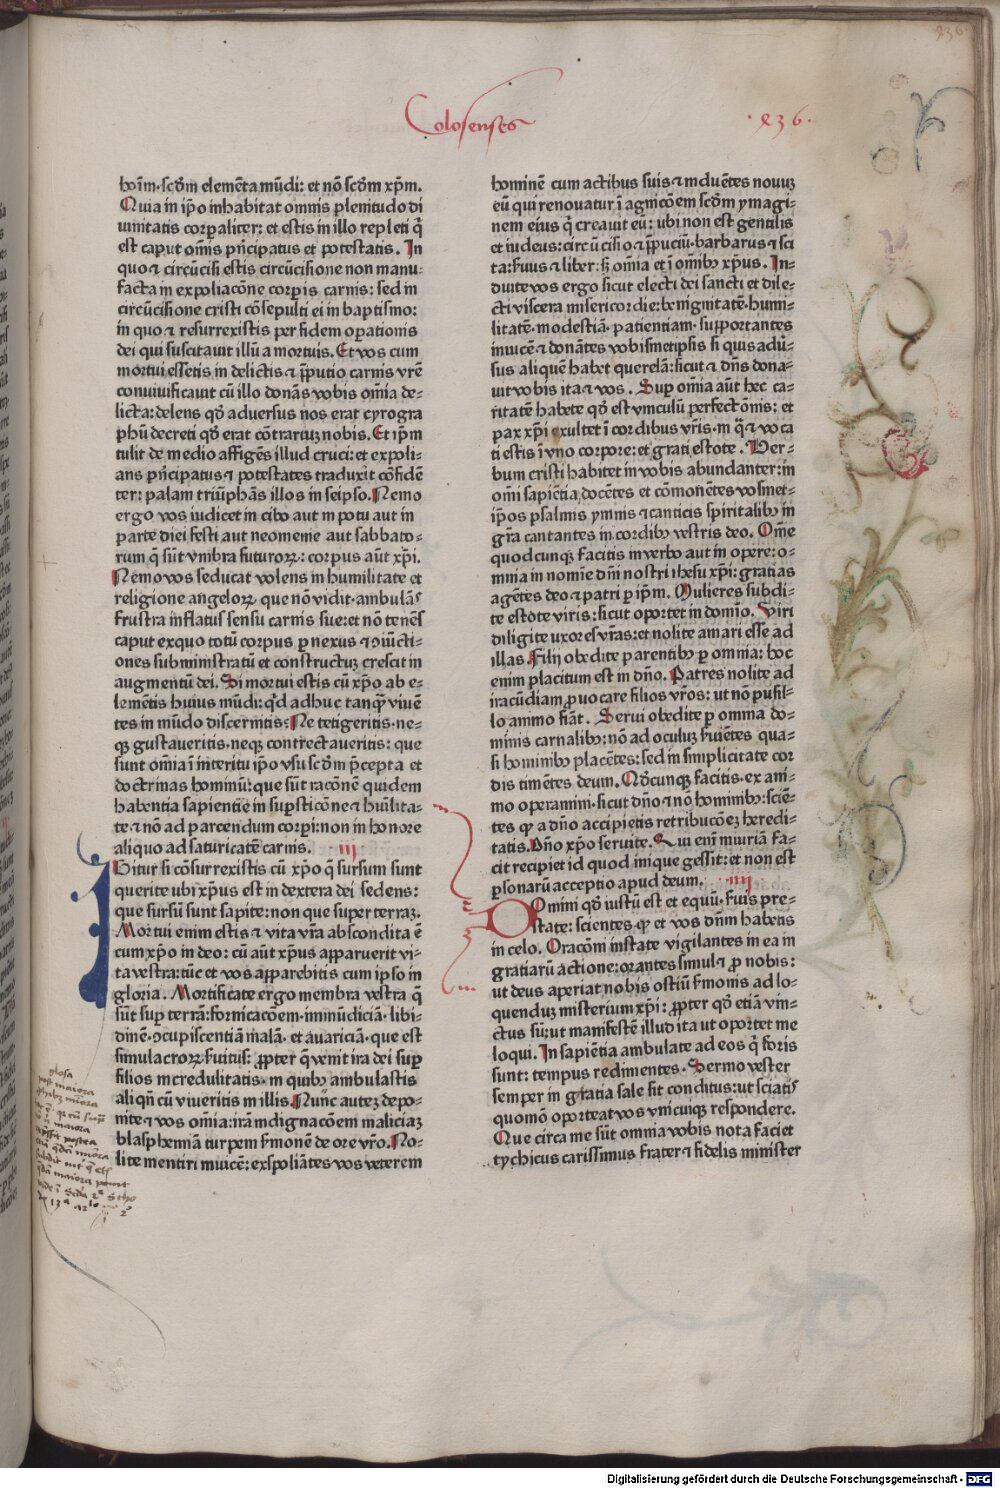 Colosenses
·236·
hoīm·scḋm elemēta mūdi: et nō scḋm xp̄m.
Quia in ip̄o inhabitat omnis plenitudo di
uinitatis corp̱aliter: et estis in illo repleti q̄
est caput om̄is pn̄cipatus et potestatis. In
quo ⁊ circūcisi estis circūcisione non manu-
facta in expoliacōne corp̱is carnis: sed in
circūcisione cristi cōsepulti ei in baptismo:
in quo ⁊ resurrexistis per fidem operationis
dei qui suscitauit illū a mortuis. Et vos cum
mortui essetis in delictis ⁊ p̄putio carnis vr̄e
conuiuificauit cū illo donās vobis om̄ia de-
licta: delens qḋ aduersus nos erat cyrogra
phū decreti qḋ erat cōtrariuꝫ nobis. Et ip̄m
tulit de medio affigēs illud cruci: et expoli-
ans pn̄cipatus ⁊ potestates traduxit cōfidē
ter: palam triūphās illos in seipso. Nemo
ergo vos iudicet in cibo aut in potu aut in
parte diei festi aut neomenie aut sabbato-
rum q̄ sūt vmbra futuroꝝ: corpus aūt xp̄i.
Nemo vos seducat volens in humilitate et
religione angeloꝝ que nō vidit·ambulās
frustra inflatus sensu carnis sue: et nō tenēs
caput ex quo totū corpus p̱ nexus ⁊ ꝯiūcti-
ones subministratū et constructuꝫ crescit in
augmentū dei. Si mortui estis cū xp̄o ab e-
lemētis huius mūdi: qd̄ adhuc tanq̄ȝ viuē
tes in mūdo discernitis: Ne tetigeritis·ne-
qꝫ gustaueritis·neqꝫ contrectaueritis: que
sunt om̄ia ī interitu ip̄o vsu scḋm p̄cepta et
doctrinas hominū: que sūt racōnē quidem
habentia sapientie in sup̱sticōne ⁊ hūilita-
te·⁊ nō ad parcendum corp̱i: non in honore
aliquo ad saturitatē carnis. III
Igitur si cōsurrexistis cū xp̄o q̄ sursum sunt
querite vbi xp̄us est in dextera dei sedens:
que sursū sunt sapite: non que super terraꝫ.
Mortui enim estis ⁊ vita vr̄a abscondita ē
cum xp̄o in deo: cū aūt xp̄us apparuerit vi-
ta vestra: tūc et vos apparebitis cum ipso in
gloria. Mortificate ergo membra vestra q̄
sūt sup̱ terrā: fornicacōem·inmūdiciā·libi-
dinē·ꝯcupiscentiā malā·et auariciā·que est
simulacroꝝ s̄uitus: p̱pter q̄ venit ira dei sup̱
filios incredulitatis·in quibꝫ ambulastis
aliqn̄ cū viueritis in illis. Nunc auteꝫ depo-
nite ⁊ vos om̄ia: irā indignacōem maliciaꝫ
blasphemiā turpem s̄monē de ore vr̄o. No-
lite mentiri inuicē: exspoliātes vos veterem
hominē cum actibus suis ⁊ induētes nouuꝫ
eū qui renouatur ī agnicōem scḋm ymagi-
nem eius q̄ creauit eū: vbi non est gentilis
et iudeus: circūcisio ⁊ p̄puciū·barbarus ⁊ sci
ta: s̄uus ⁊ liber: sꝫ om̄ia et ī om̄ibꝫ xp̄us. In-
duite vos ergo sicut electi dei sancti et dile-
cti viscera misericordie: benignitatē·humi-
litatē·modestiā·patientiam·supportantes
inuicē ⁊ donātes vobismetipsis si quis adū-
sus aliquē habet querelā: sicut ⁊ dn̄s dona-
uit vobis ita ⁊ vos. Sup̱ om̄ia aūt hec ca-
ritatē habete qḋ est vinculū perfectōnis: et
pax xp̄i exultet ī cordibus vr̄is·in q̄ ⁊ voca
ti estis ī vno corpore: et grati estote. Ver-
bum cristi habitet in vobis abundanter: in
om̄i sapiētia docētes et cōmonētes vosmet-
ip̄os psalmis ymnis ⁊ canticis spiritalibꝫ in
gr̄a cantantes in cordibꝫ vestris deo. Om̄e
quodcunqꝫ facitis in verbo aut in opere: o-
mnia in nomīe dn̄i nostri ihesu xp̄i: gratias
agētes deo ⁊ patri p̱ ip̄m. Mulieres subdi-
te estote viris: sicut oportet in domīo. Viri
diligite vxores vr̄as: et nolite amari esse ad
illas. Filij obedite parentibꝫ p̱ omnia: hoc
enim placitum est in dn̄o. Patres nolite ad
iracūdiam p̱uocare filios vr̄os: ut nō pusil-
lo animo fiāt. Serui obedite p̱ omnia do-
minis carnalibꝫ: nō ad oculuꝫ s̄uiētes qua-
si hominibꝫ placētes: sed in simplicitate cor
dis timētes deum. Qḋcunqꝫ facitis·ex ani-
mo operamini·sicut dn̄o ⁊ nō hominibꝫ: sciē-
tes qꝫ a dn̄o accipietis retribucōeꝫ heredi-
tatis. Dn̄o xp̄o seruite. Qui eni͂ iniuriā fa-
cit recipiet id quod inique gessit: et non est
p̱sonarū acceptio apud deum. IIII
Domini qḋ iustū est et equū·s̄uis pre-
state: scientes qꝫ et vos dn̄m habetis
in celo. Oracōni instate vigilantes in ea in
gratiarū actione: orantes simul ⁊ p̱ nobis:
ut deus aperiat nobis ostiū s̄monis ad lo-
quenduꝫ misterium xp̄i: p̱pter qḋ etiā vin-
ctus sū: ut manifestē illud ita ut oportet me
loqui. In sapiētia ambulate ad eos q̄ foris
sunt: tempus redimentes. Sermo vester
semper in gratia sale sit conditus: ut sciatis
quomō oporteat vos vnicuiqꝫ respondere.
Que circa me sūt omnia vobis nota faciet
tychicus carissimus frater ⁊ fidelis minister
glosa
Digitalisierung gefördert durch die Deutsche Forschungsgemeinschaft - DFG